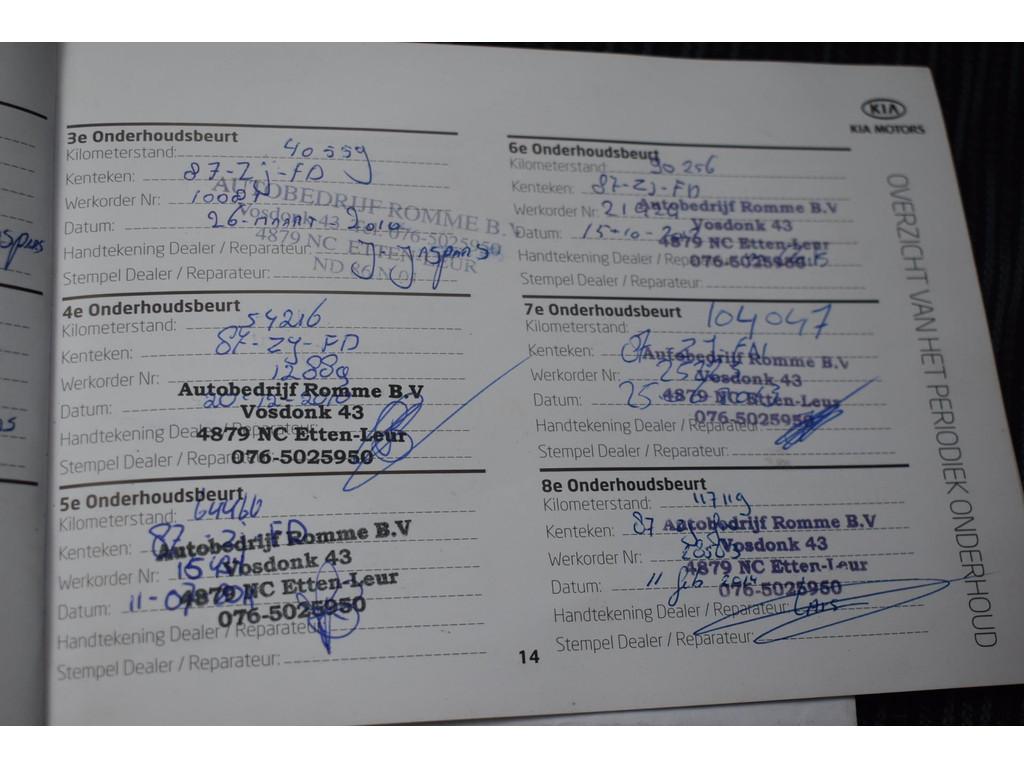 KIA
KIA MOTORS
OVERZICHT VAN HET PERIODIEK ONDERHOUD
3e Onderhoudsbeurt
Kilometerstand: 40559
Kenteken: 87-ZJ-FD
Werkorder Nr:
Datum: 26-maart 2010
Handtekening Dealer / Reparateur: J. Jaspers
Stempel Dealer / Reparateur:
AUTOBEDRIJF ROMME B.V.
Vosdonk 43 tel. 076-5025950
4879 NC ETTEN-LEUR
4e Onderhoudsbeurt
Kilometerstand: 54216
Kenteken: 87-ZJ-FD
Werkorder Nr: 12889
Datum:
Handtekening Dealer / Reparateur:
Stempel Dealer / Reparateur:
Autobedrijf Romme B.V
Vosdonk 43
4879 NC Etten-Leur
076-5025950
5e Onderhoudsbeurt
Kilometerstand: 64466
Kenteken: 87-ZJ-FD
Werkorder Nr:
Datum: 11-07
Handtekening Dealer / Reparateur:
Stempel Dealer / Reparateur:
Autobedrijf Romme B.V
Vosdonk 43
4879 NC Etten-Leur
076-5025950
6e Onderhoudsbeurt
Kilometerstand: 90256
Kenteken: 87-ZJ-FD
Werkorder Nr:
Datum: 15-10-
Handtekening Dealer / Reparateur:
Stempel Dealer / Reparateur:
Autobedrijf Romme B.V
Vosdonk 43
4879 NC Etten-Leur
076-5025950
7e Onderhoudsbeurt
Kilometerstand: 104047
Kenteken: 87-ZJ-FD
Werkorder Nr:
Datum: 25
Handtekening Dealer / Reparateur:
Stempel Dealer / Reparateur:
Autobedrijf Romme B.V
Vosdonk 43
4879 NC Etten-Leur
076-5025950
8e Onderhoudsbeurt
Kilometerstand: 117119
Kenteken: 87
Werkorder Nr:
Datum: 11 feb 2014
Handtekening Dealer / Reparateur: Lars
Stempel Dealer / Reparateur:
Autobedrijf Romme B.V
Vosdonk 43
4879 NC Etten-Leur
076-5025950
14